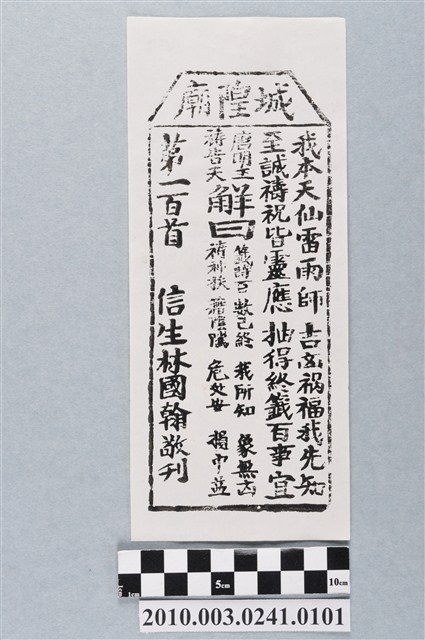 城隍廟
我本天仙雷雨師 吉凶禍福我先知
至誠禱祝皆靈應 抽得終籤百事宜
唐明王
禱告天
解曰
籤詩百 數已終 我所知 象無凶
禱神扶 藉陰隲 危处安 損中益
第一百首 信生林國翰敬刊
1cm 5cm 10cm
2010.003.0241.0101